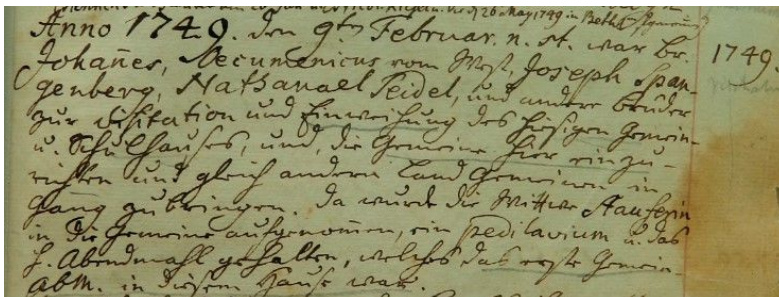 26 May 1749 in Bethl.
Anno 1749. den 9ten Februar. n. st. war br.
Johañes, Oecumenicus vom West, Joseph Span-
genberg, Nathanael Seidel, und andere brüder
zur Visitation und Einweihung des hiesigen Gemein-
u. Schulhauses, und, die Gemeine hier einzu-
richten und gleich andern Land Gemeinen in
Gang zu bringen. Da wurde die Wittwe Stauferin
in die Gemeine aufgenom̅en, ein pedilavium u. das
h. Abendmahl gehalten, welches das erste Gemein-
abm. in diesem Hause war.
1749.